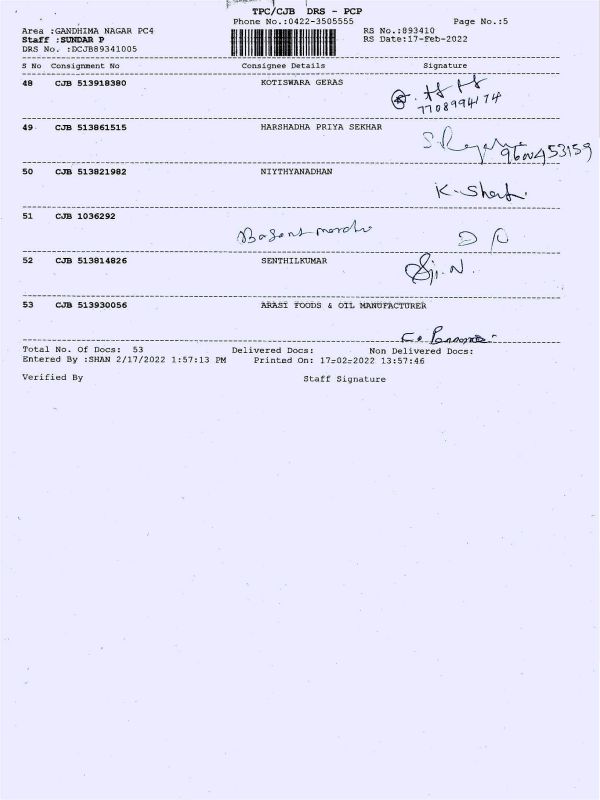 TPC/CJB DRS - PCP
Phone No.:0422-3505555 Page No.:5
Area :GANDHIMA NAGAR PC4 RS No.:893410
Staff :SUNDAR P RS Date:17-Feb-2022
DRS No. :DCJB89341005
S No Consignment No Consignee Details Signature
48 CJB 513918380 KOTISWARA GERAS
7708994174
49 CJB 513861515 HARSHADHA PRIYA SEKHAR
9600453159
50 CJB 513821982 NIYTHYANADHAN
51 CJB 1036292
52 CJB 513814826 SENTHILKUMAR
53 CJB 513930056 ARASI FOODS & OIL MANUFACTURER
Total No. Of Docs: 53 Delivered Docs: Non Delivered Docs:
Entered By :SHAN 2/17/2022 1:57:13 PM Printed On: 17-02-2022 13:57:46
Verified By Staff Signature